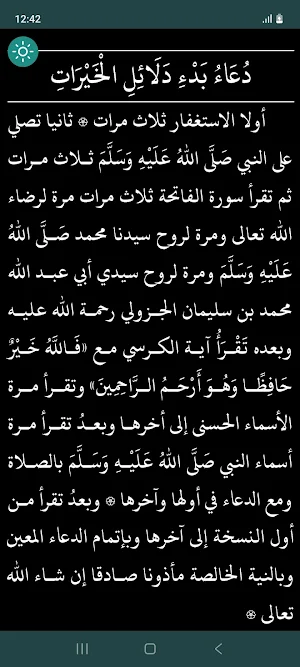 12:42
دُعَاءُ بَدْءِ دَلَائِلِ الْخَيْرَاتِ
أولا الاستغفار ثلاث مرات ۞ ثانيا تصلي
على النبي صَلَّى اللهُ عَلَيْهِ وَسَلَّمَ ثـلاث مـرات
ثم تقرأ سورة الفاتحة ثلاث مرات مرة لرضاء
الله تعالى ومرة لروح سيدنا محمد صَـلَّى اللهُ
عَلَيْهِ وَسَلَّمَ ومرة لروح سيدي أبي عبـد الله
محمد بن سليمان الجـزولي رحمـة الله عليـه
وبعده تَقْـرَأُ آيـة الكـرسي مـع «فَـاللَّهُ خَـيْرٌ
حَافِظًـا وَهُـوَ أَرْحَـمُ الـرَّاحِمِينَ» وتقـرأ مـرة
الأسماء الحسنى إلى أخرهـا وبعـدُ تقـرأ مـرة
أسماء النبي صَلَّى اللهُ عَلَيْـهِ وَسَـلَّمَ بالصـلاة
ومع الدعاء في أولها وآخرها ۞ وبعدُ تقرأ مـن
أول النسخة إلى آخرها وبإتمام الدعاء المعين
وبالنية الخالصة مأذونا صـادقا إن شـاء الله
تعالى ۞